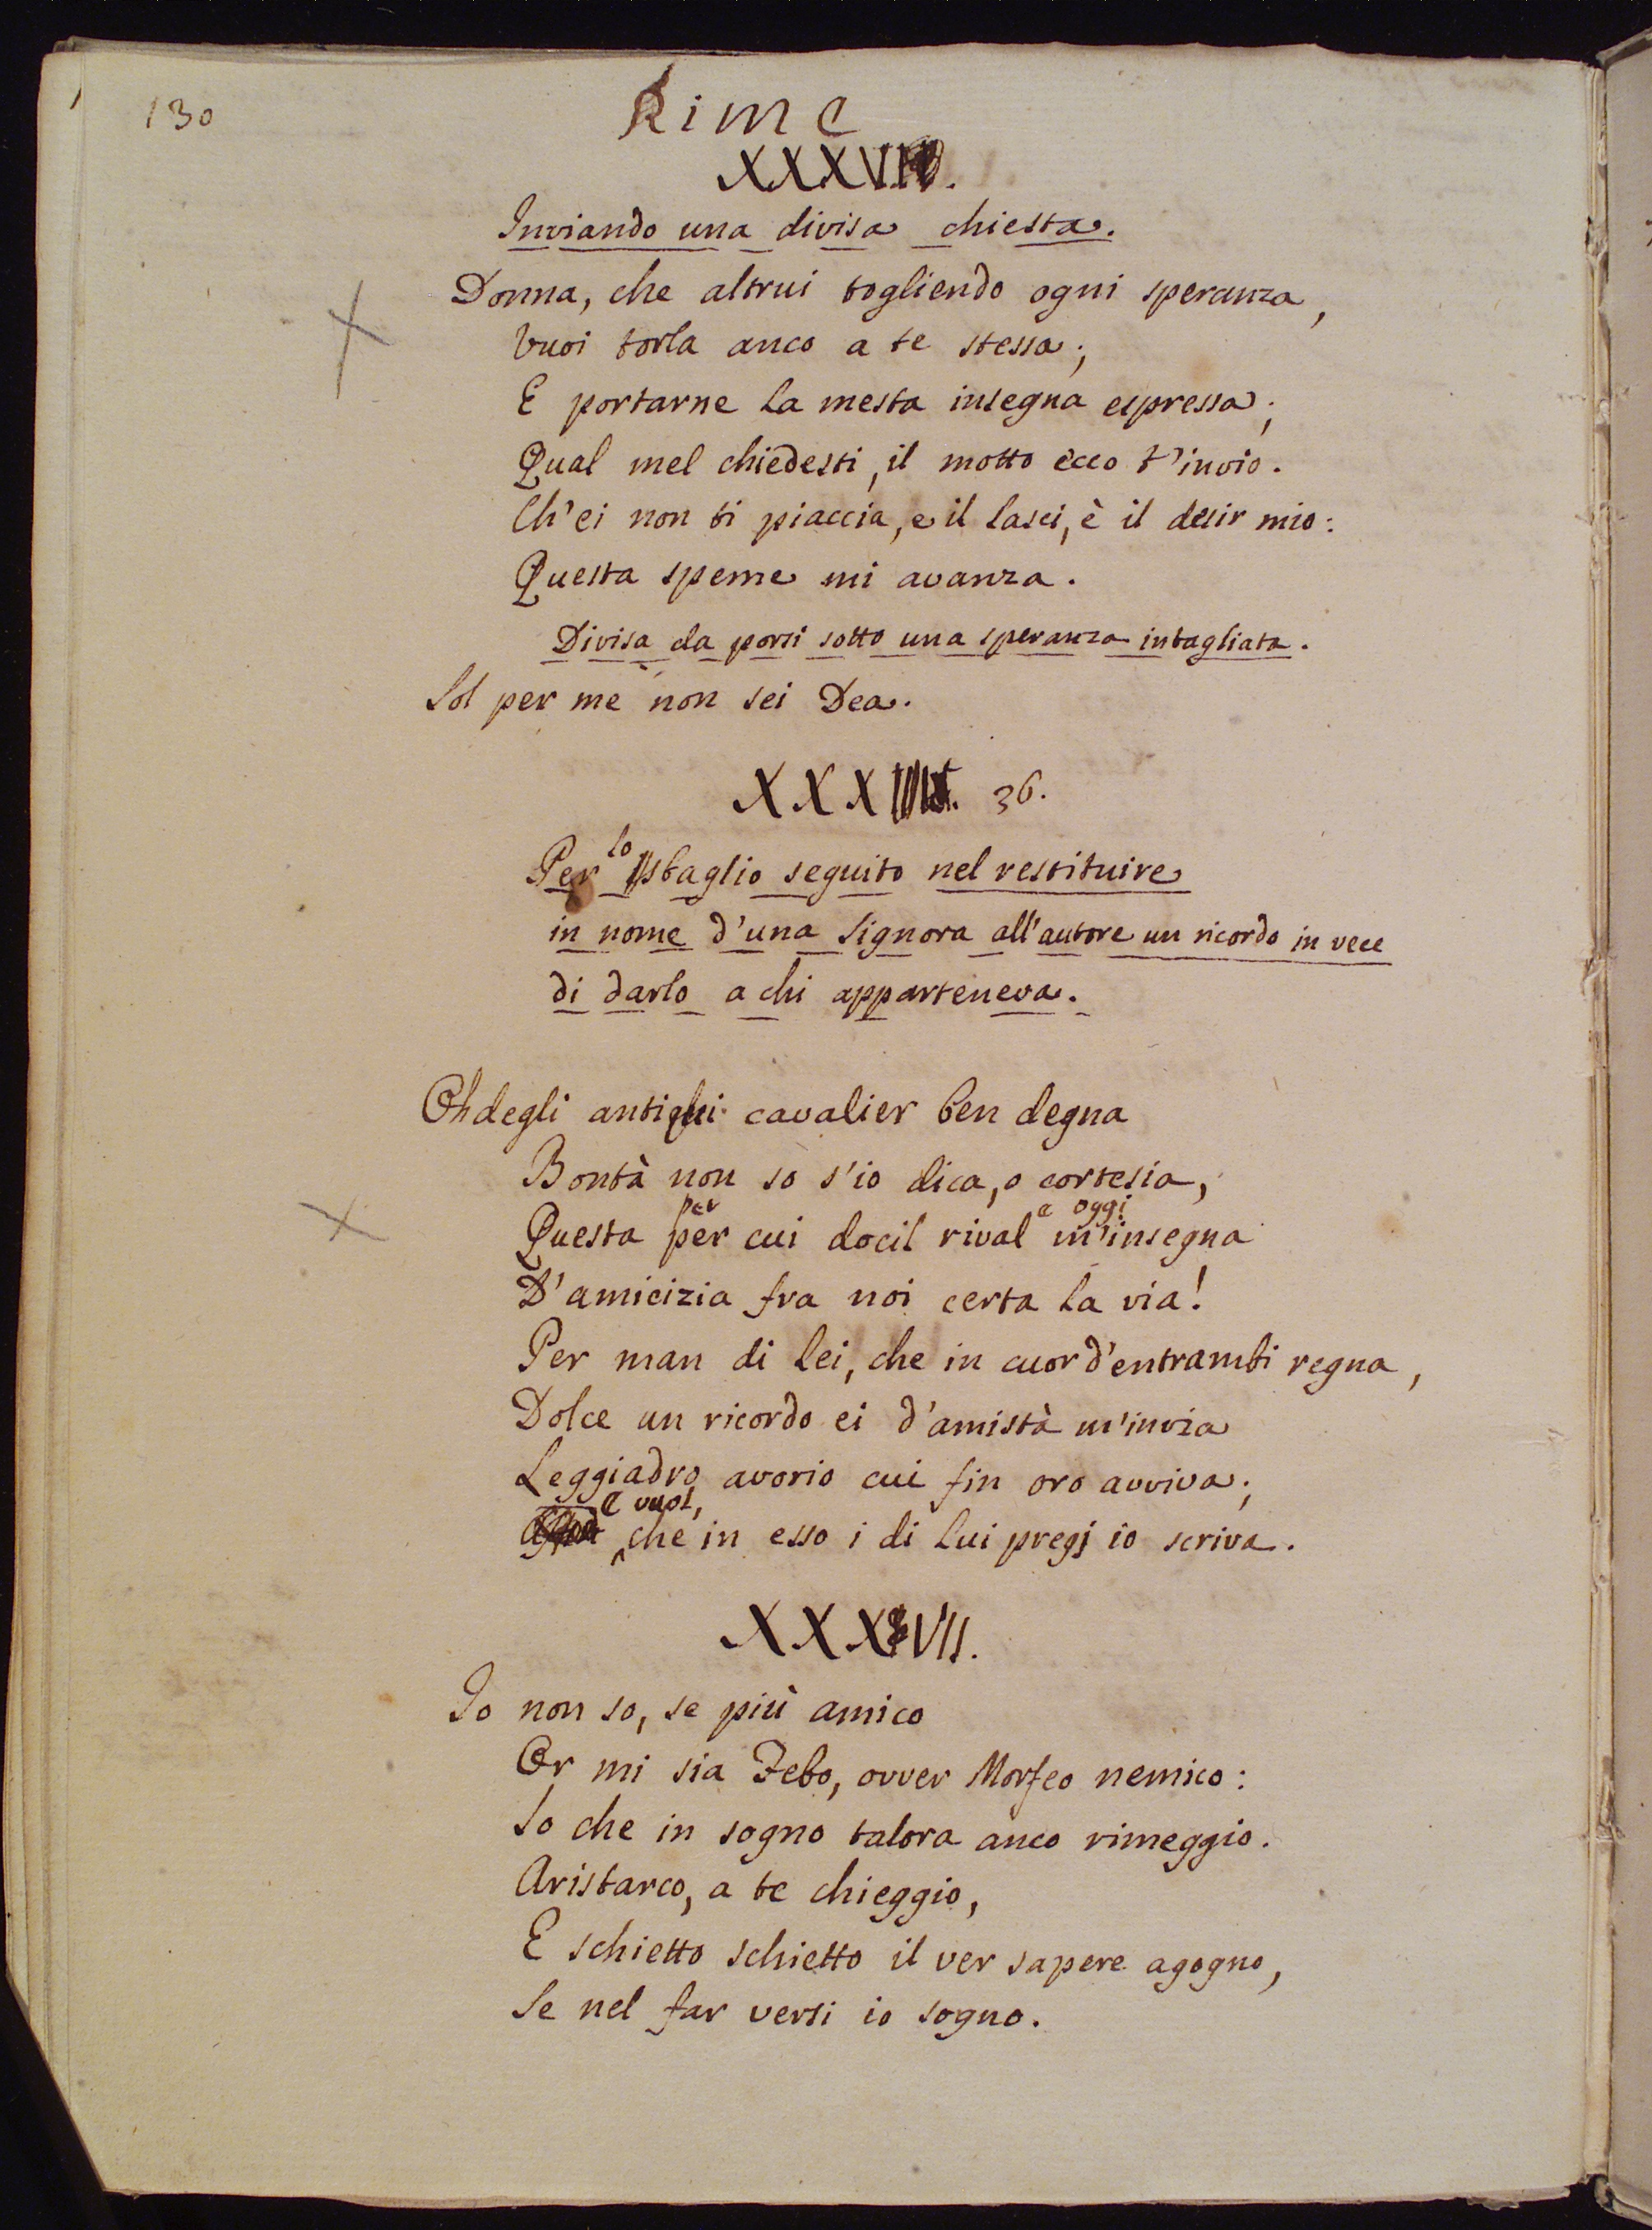 130
Rime
XXXVI.
Inviando una divisa chiesta.
Donna, che altrui togliendo ogni speranza,
Vuoi torla anco a te stessa;
E portarne la mesta insegna espressa;
Qual mel chiedesti, il motto ecco t'invio.
Ch'ei non ti piaccia, e il lasci, è il desir mio:
Questa speme mi avanza.
Divisa da porsi sotto una speranza intagliata.
Sol per me non sei Dea.
XXX 36.
lo
Per sbaglio seguito nel restituire
in nome d'una Signora all'autore un ricordo in vece
di darlo a chi apparteneva.
Oh degli antiqui cavalier ben degna
Bontà non so s'io dica, o cortesia,
per e oggi
Questa per cui docil rival m'insegna
D'amicizia fra noi certa la via!
Per man di lei, che in cuor d'entrambi regna,
Dolce un ricordo ei d'amistà m'invia
Leggiadro avorio cui fin oro avviva;
E vuol,
che in esso i di lui pregj io scriva.
XXXVII.
Io non so, se più amico
Or mi sia Febo, ovver Morfeo nemico:
So che in sogno talora anco rimeggio.
Aristarco, a te chieggio,
E schietto schietto il ver sapere agogno,
Se nel far versi io sogno.